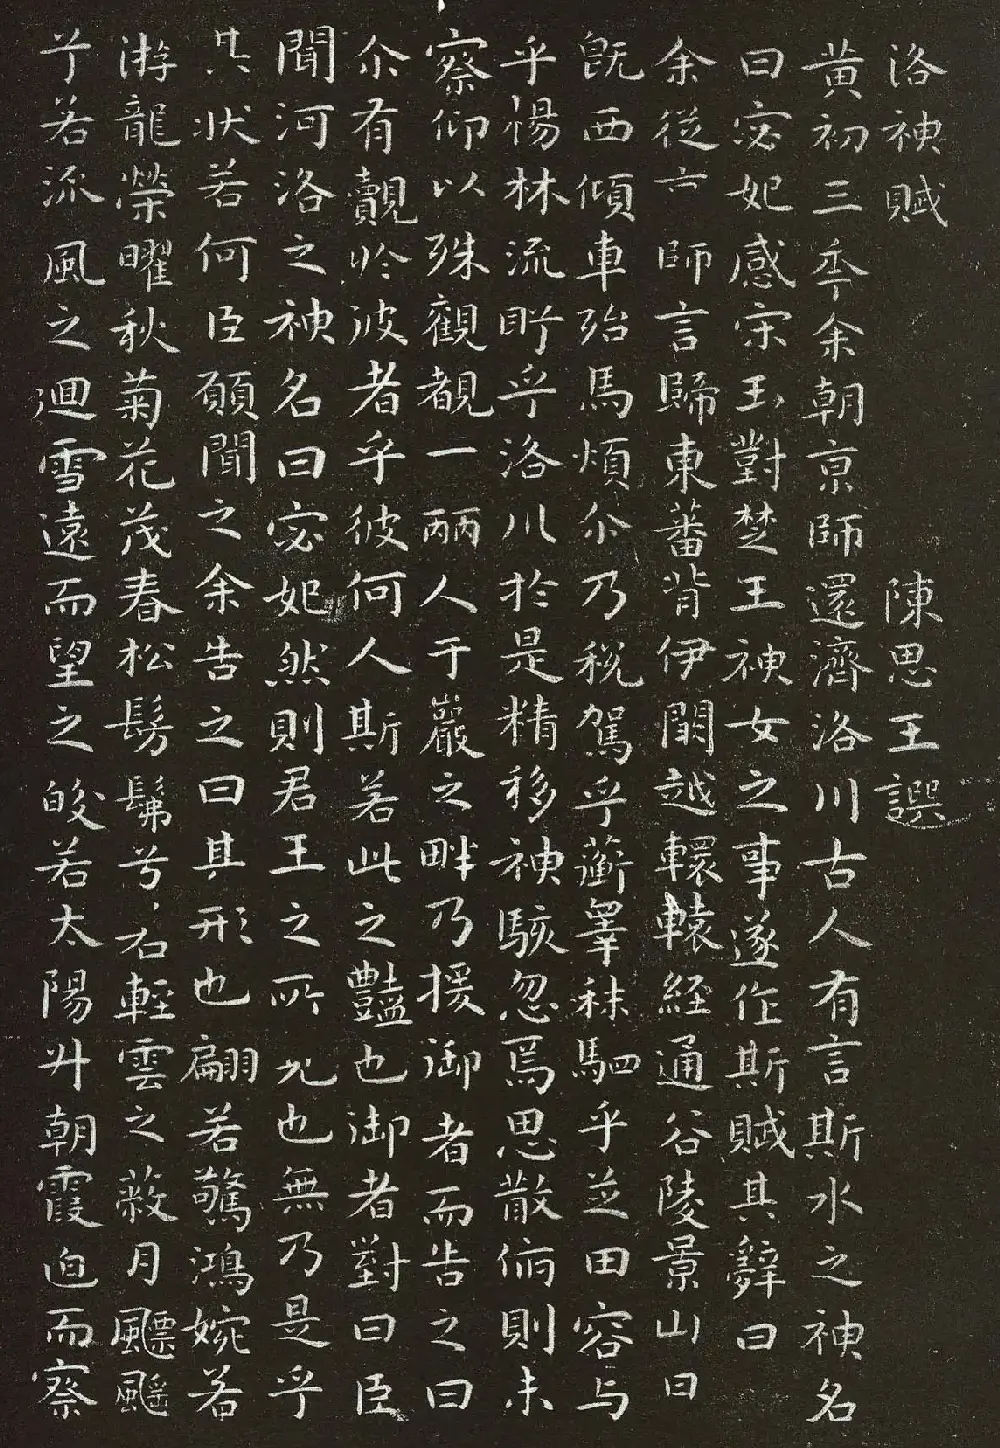 洛神賦 陳思王譔
黄初三秊余朝京師還濟洛川古人有言斯水之神名
曰宓妃感宋玉對楚王神女之事遂作斯賦其辭曰
余從京師言歸東藩背伊闕越轘轅經通谷陵景山日
既西傾車殆馬煩尒乃稅駕乎蘅皋秣駟乎芝田容与
乎楊林流眄乎洛川於是精移神駭忽焉思散俯則未
察仰以殊觀覩一麗人于巖之畔乃援御者而告之曰
尒有覿於彼者乎彼何人斯若此之豔也御者對曰臣
聞河洛之神名曰宓妃然則君王之所見也無乃是乎
其狀若何臣願聞之余告之曰其形也翩若驚鴻婉若
游龍榮曜秋菊花茂春松髣髴兮若輕雲之蔽月飄颻
兮若流風之迴雪遠而望之皎若太陽升朝霞迫而察